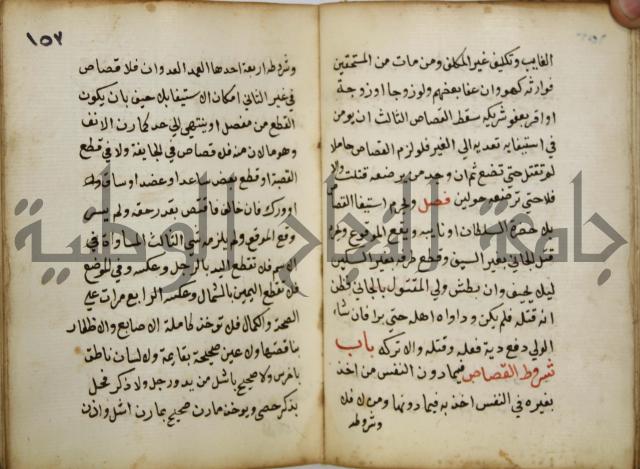 الغايب وتكليف غير المكلف ومن مات من المستحقين
فوارثه كهو وان عفا بعضهم ولو زوجا او زوجة
او اقر بعفو شريكه سقط القصاص الثالث ان يومن
في استيفايه تعديه الى الغير فلو لزم القصاص حاملا
لم تقتل حتى تضع ثم ان وجد من يرضعه قتلت والا
فلا حتى ترضعه حولين فصل ويحرم استيفا القصاص
بلا حضرة السلطان او نايبه ويقع الموقع ويحرم
قتل الجاني بغير السيف وقطع طرفه بغير السكين
ليلا يحيف وان بطش ولي المقتول بالجاني فظن
انه قتله فلم يكن وداواه اهله حتى برا فان شاء
الولي دفع دية فعله وقتله والا تركه باب
شروط القصاص فيما دون النفس من اخذ
بغيره في النفس اخذ به فيما دونها ومن لا فلا
وشروطه
١٥٢
وشروطه اربعة احدها العمد العدوان فلا قصاص
في غيره الثاني امكان الاستيفا بلا حيف بان يكون
القطع من مفصل او ينتهي الى حد كمارن الانف
وهو ما لان منه فلا قصاص في جايفة ولا في قطع
القصبة او قطع بعض ساعد او عضد او ساق او
او ورك فان خالف فاقتص بقدر حقه ولم يسر
وقع الموقع ولم يلزمه شي الثالث المساواة في
الاسم فلا تقطع اليد بالرجل وعكسه وفي الموضع
فلا تقطع اليمين بالشمال وعكسه الرابع مراعاة
الصحة والكمال فلا توخذ كاملة الاصابع والاظفار
بناقصتها ولا عين صحيحة بقايمة ولا لسان ناطق
باخرس ولا صحيح باشل من يد ورجل ولا ذكر فحل
بذكر خصي ويوخذ مارن صحيح بمارن اشل واذن
جامعة النجاح الوطنية